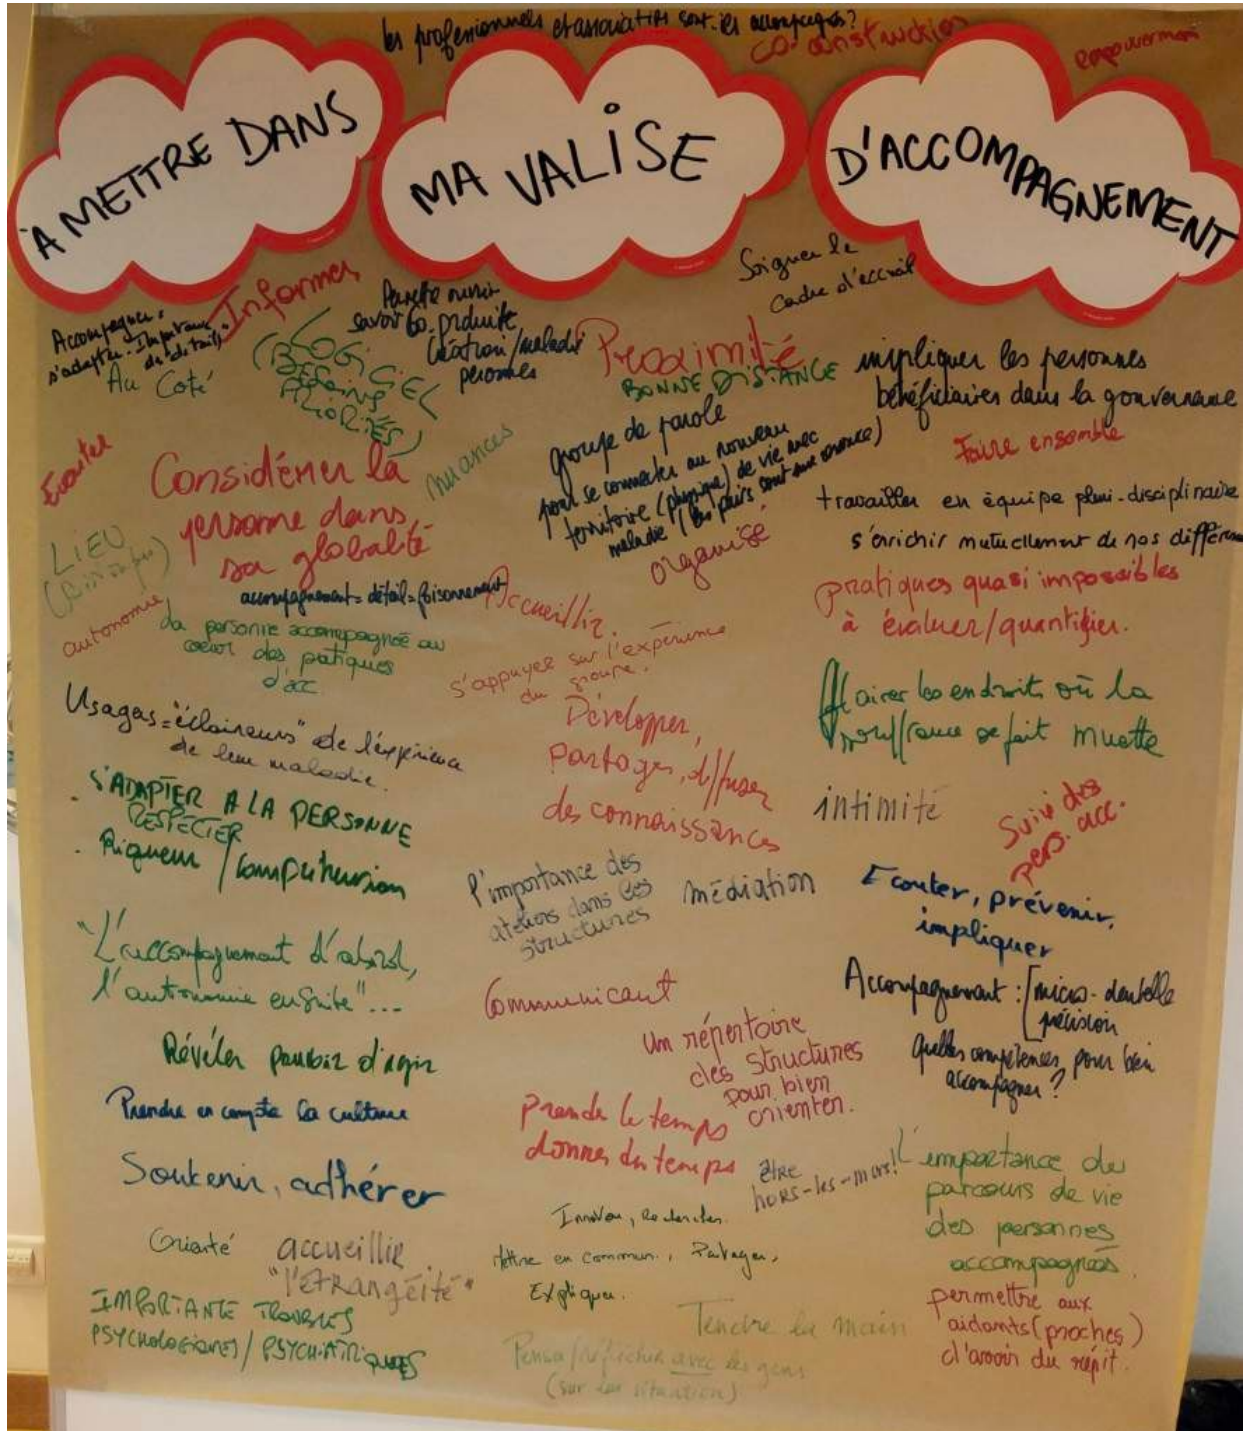 les professionnels et associatifs sont-ils accompagnés?
co-construction
empowerment
À METTRE DANS
MA VALISE
D'ACCOMPAGNEMENT
Soigner le
cadre d'accueil
Informer
Accompagner =
s'adapter - Importance
des détails
Au Coté
savoir co-produite
création/maladie
personnes
LOGICIEL
(BESOINS
PRIORITÉS)
Proximité
BONNE DISTANCE
impliquer les personnes
bénéficiaires dans la gouvernance
Faire ensemble
Ecouter
Considérer la
personne dans
sa globalité
nuances
groupe de parole
pour se connecter au nouveau
territoire (physique) de vie avec
maladie (les pairs sont une ressource)
organisé
travailler en équipe pluri-disciplinaire
s'enrichir mutuellement de nos différen
LIEU
autonomie
accompagnement = détail = foisonnement
La personne accompagnée au
coeur des pratiques
d'acc
Accueillir
s'appuyer sur l'expérience
du groupe.
pratiques quasi impossibles
à évaluer/quantifier.
Usagas = "éclaireurs" de l'expérience
de leur maladie.
Développer,
partager, diffuser
des connaissances
Flairer les endroits où la
souffrance se fait muette
. S'ADAPTER A LA PERSONNE
RESPECTER
. Rigueur / Compréhension
intimité
Suivi des
pers. acc.
l'importance des
ateliers dans les
structures
médiation
Ecouter, prévenir,
impliquer
"L'accompagnement d'abord,
l'autonomie ensuite"...
Communicant
Accompagnement : [micro-dentelle
précision
Révéler pouvoir d'agir
Un répertoire
des structures
pour bien
orienter.
quelles compétences pour bien
accompagner?
Prendre en compte la culture
Prendre le temps
donner du temps
être
hors-les-murs!
Soutenir, adhérer
L'importance du
parcours de vie
des personnes
accompagnées.
Innover, Rechercher.
Mettre en commun, Partager,
Expliquer.
accueillir
"l'étrangéité"
IMPORTANTE TROUBLES
PSYCHOLOGIQUES / PSYCHIATRIQUES
Tendre la main
permettre aux
aidants (proches)
d'avoir du répit.
Penser/réfléchir avec les gens
(sur les situation)